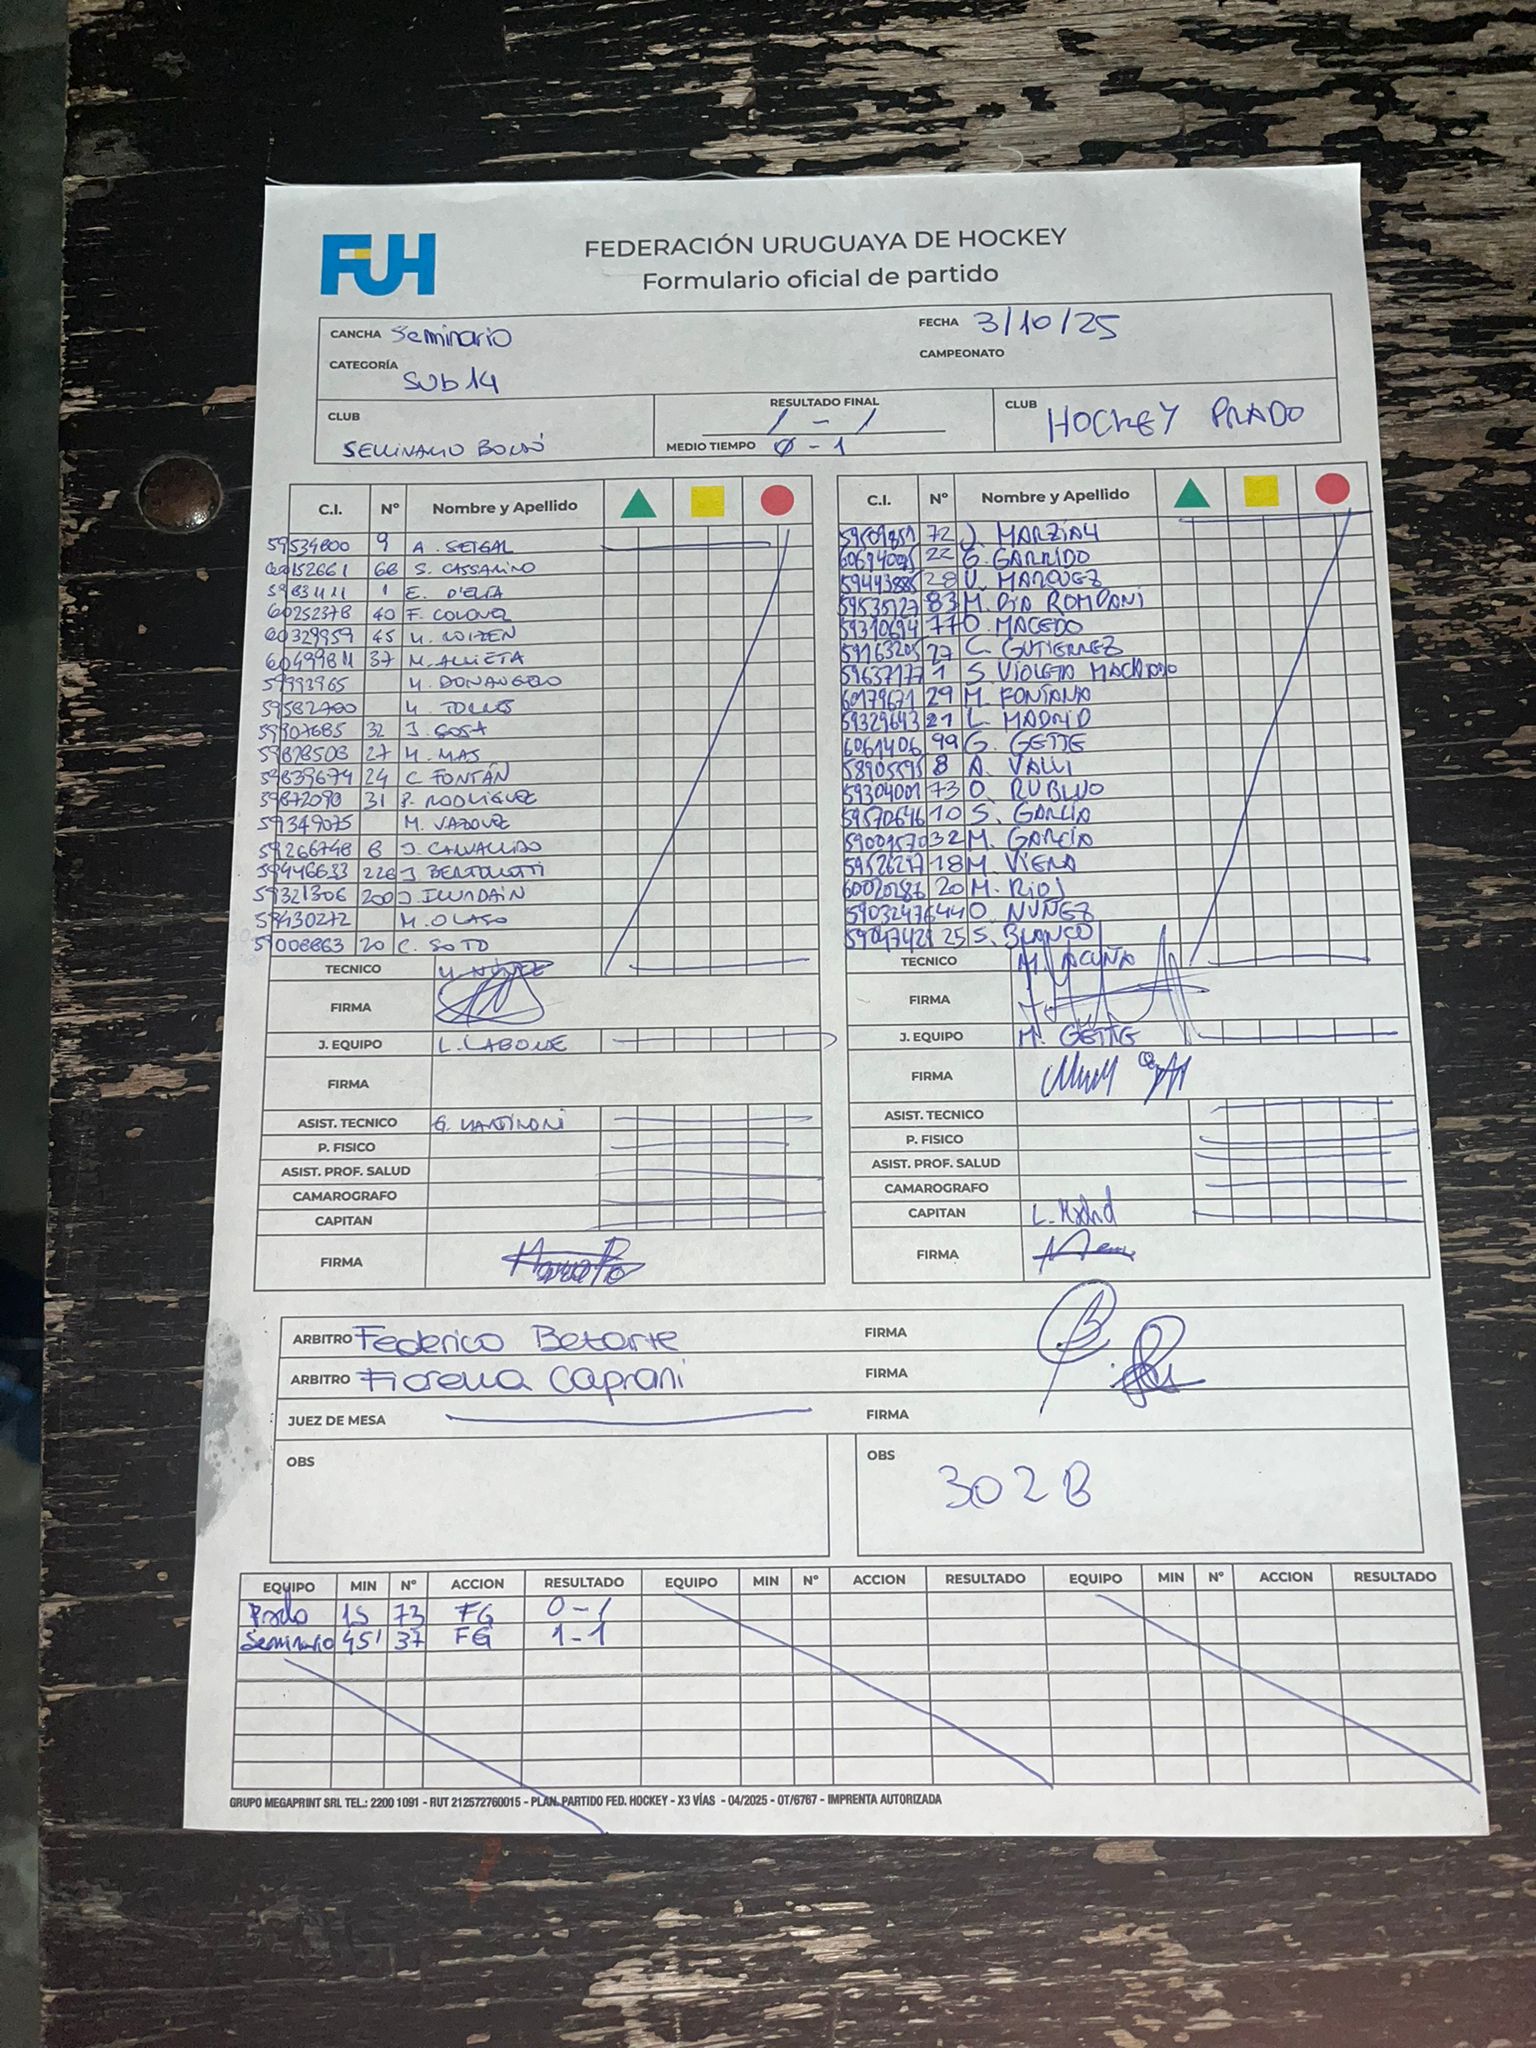 FUH
FEDERACIÓN URUGUAYA DE HOCKEY
Formulario oficial de partido
CANCHA Seminario
FECHA 3/10/25
CATEGORÍA Sub 14
CAMPEONATO
CLUB SEMINARIO
RESULTADO FINAL 1 - 1
MEDIO TIEMPO 0 - 1
CLUB HOCKEY PRADO
C.I. Nº Nombre y Apellido
59534800 9 A. SEIGAL
60152661 66 S. CASSARINO
1 E. D'ELIA
60252378 40 F.
60329959 45
37 M.
M. DONANGELO
M. TORRES
59907685 32 J. SOSA
59878508 27 M. MAS
59839674 24 C. FONTÁN
59872090 31 P. RODRIGUEZ
59349075 M. VAZQUEZ
59266748 8 J. CARVALLIDO
59446633 226 J. BERTOLOTTI
59321306 200 J. ILUNDAIN
59430272 M. OLASO
59008863 20 C. SOTO
TECNICO
FIRMA
J. EQUIPO L. LABORDE
FIRMA
ASIST. TECNICO G. MARTINONI
P. FISICO
ASIST. PROF. SALUD
CAMAROGRAFO
CAPITAN
FIRMA
C.I. Nº Nombre y Apellido
72 J.
22 G. GARRIDO
59443885 28 V. MARQUEZ
59535727 83 M. PIA ROMPANI
59310694 77 O. MACEDO
59163205 27 C. GUTIERREZ
59637177 1 S. VIOLETA MACHADO
60179671 29 M. FONTANA
59329643 21 L. MADRID
6061406 99 G. GETTE
58905595 8 A. VALLI
59304001 73 O. RUBIÑO
59570646 10 S. GARCÍA
59009570 32 M. GARCÍA
59526217 18 M. VIERA
60020286 20 M. RIOS
59032476 44 O. NUÑEZ
59047421 25 S. BLANCO
TECNICO M. ACUÑA
FIRMA
J. EQUIPO M. GETTE
FIRMA
ASIST. TECNICO
P. FISICO
ASIST. PROF. SALUD
CAMAROGRAFO
CAPITAN L. Madrid
FIRMA
ARBITRO Federico Betarte FIRMA
ARBITRO Fiorella Caprani FIRMA
JUEZ DE MESA FIRMA
OBS
OBS 302B
EQUIPO MIN Nº ACCION RESULTADO EQUIPO MIN Nº ACCION RESULTADO EQUIPO MIN Nº ACCION RESULTADO
Prado 15 73 FG 0-1
Seminario 45' 37 FG 1-1
GRUPO MEGAPRINT SRL TEL.: 2200 1091 - RUT 212572760015 - PLAN. PARTIDO FED. HOCKEY - X3 VÍAS - 04/2025 - OT/6767 - IMPRENTA AUTORIZADA